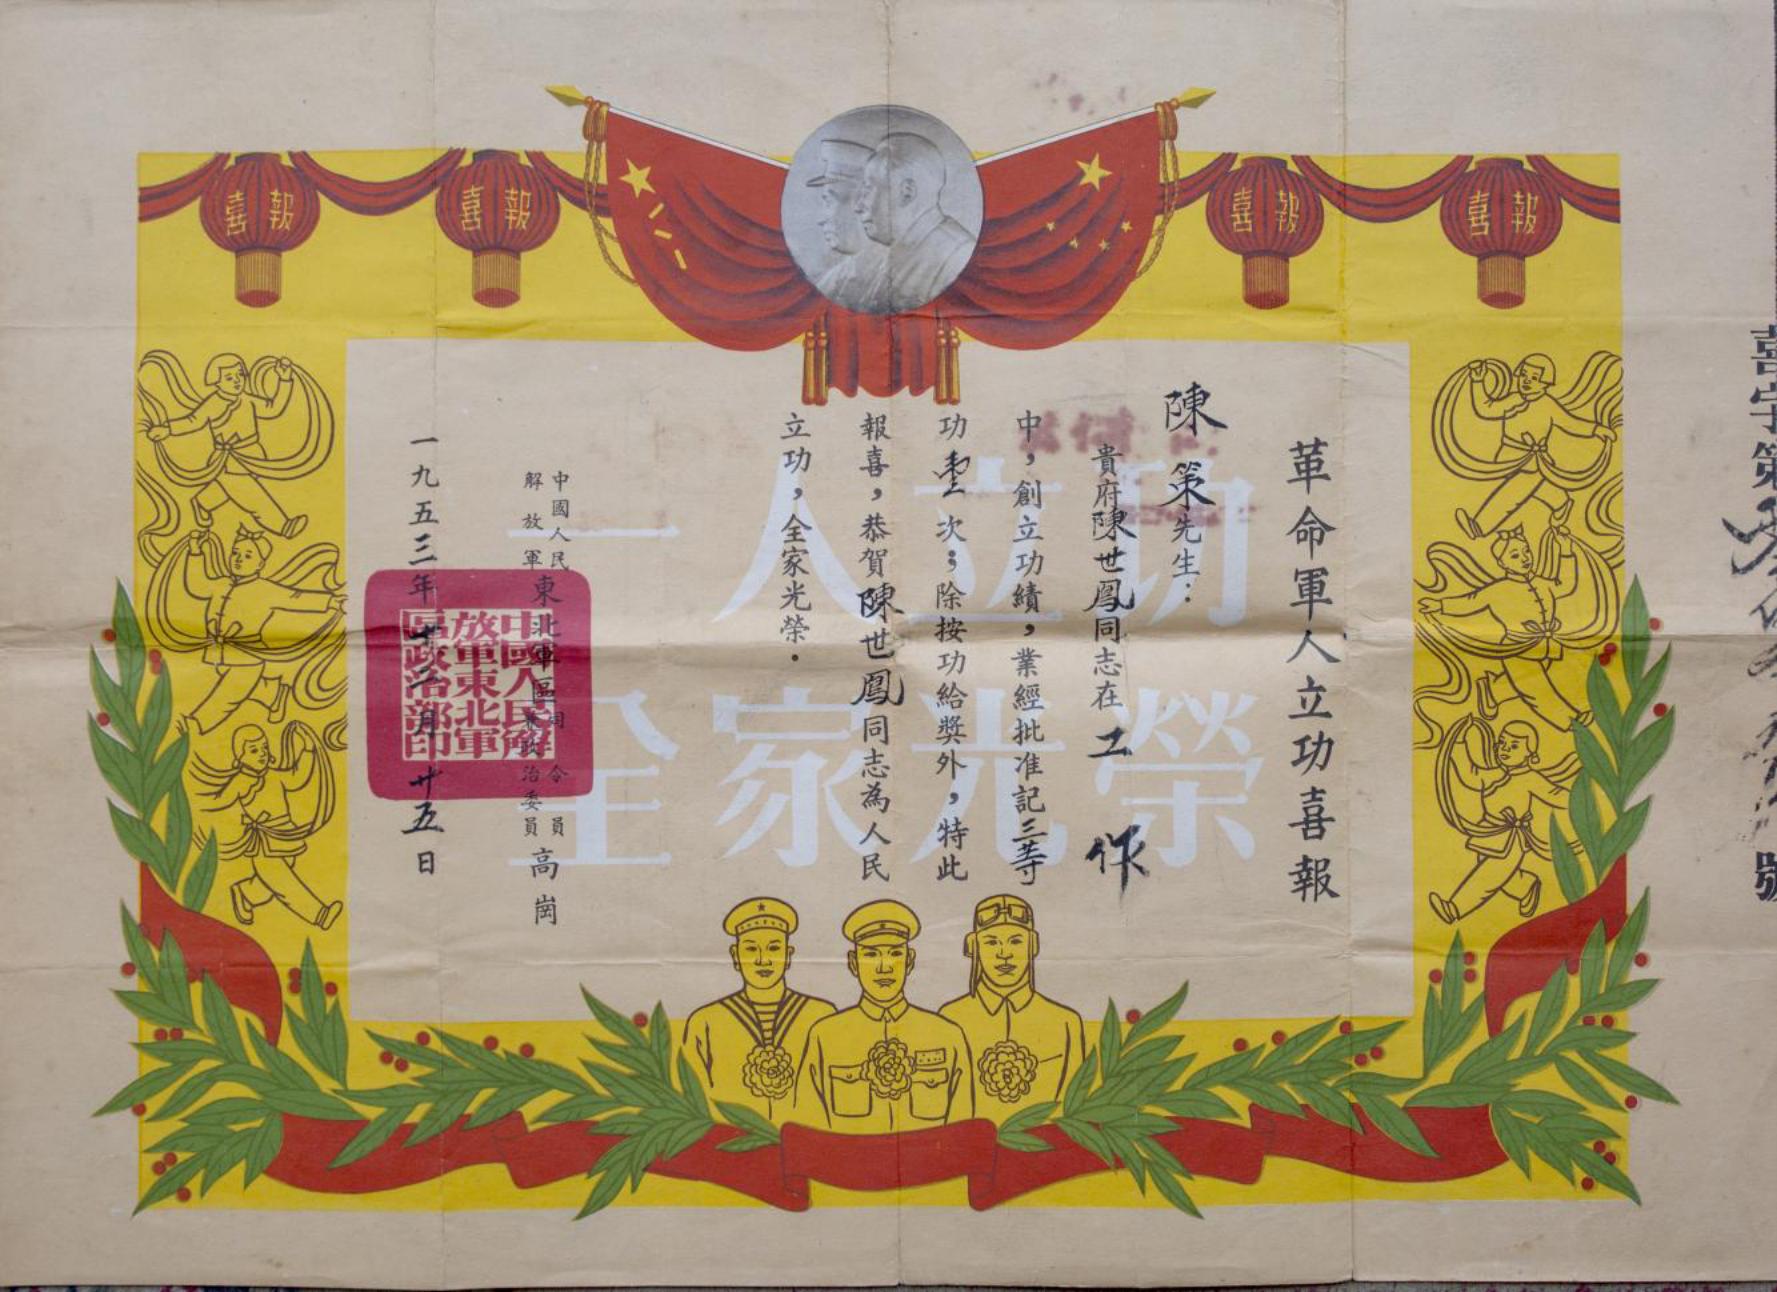 喜報
喜報
喜報
喜報
八一
喜字第 號
革命軍人立功喜報
陳策先生：
貴府陳世鳳同志在工作
中，創立功績，業經批准記三等
功壹次；除按功給獎外，特此
報喜，恭賀陳世鳳同志為人民
立功，全家光榮．
中國人民
解放軍
東北軍區
司令員
兼政治委員
高崗
一九五三年十二月廿五日
中國人民解
放軍東北軍
區政治部印
一人立功
全家光榮